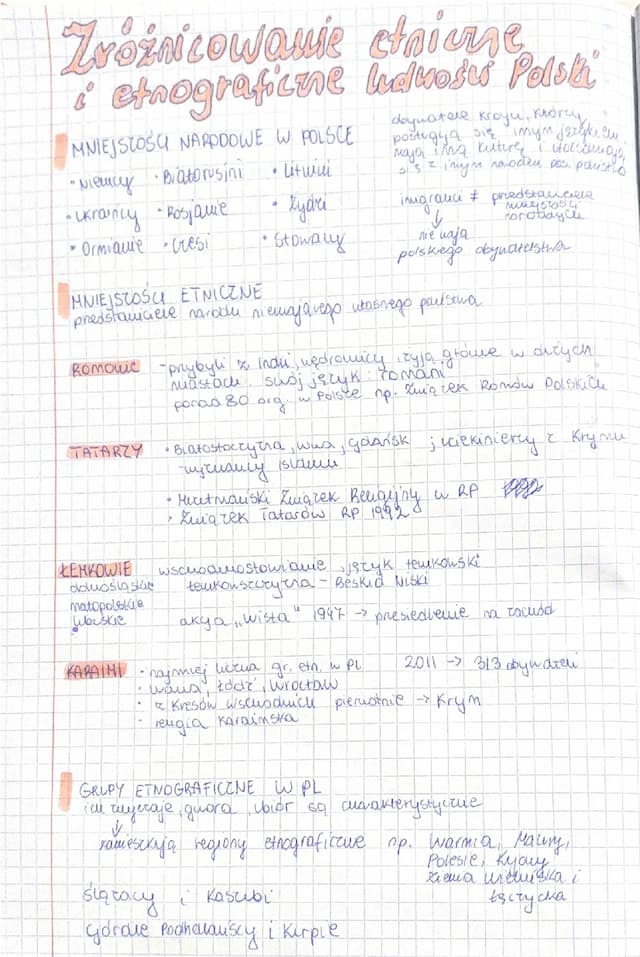 Zróżnicowanie etniczne
i etnograficzne ludności Polski
MNIEJSZOŚCI NARODOWE W POLSCE
obywatele kraju, którzy
posługują się innym językiem,
mają inną kulturę i utożsamiają
się z innym narodem pos. państwo
• Niemcy • Białorusini • Litwini
• Ukraińcy • Rosjanie • Żydzi
• Ormianie • Czesi • Słowacy
imigranci ≠ przedstawiciele
mniejszości
narodowych
↓
nie mają
polskiego obywatelstwa
MNIEJSZOŚCI ETNICZNE
przedstawiciele narodu niemającego własnego państwa
ROMOWIE - przybyli z Indii, wędrowcy, żyją głównie w dużych
miastach. swój język: romani
ponad 80 org. w Polsce np. Związek Romów Polskich
TATARZY • Białostocczyzna, Wwa, Gdańsk ; uciekinierzy z Krymu
wyznawcy islamu
• Muzułmański Związek Religijny w RP
• Związek Tatarów RP 1992
ŁEMKOWIE wschodniosłowianie, język łemkowski
dolnośląskie łemkowszczyzna - Beskid Niski
małopolskie
lubuskie akcja „Wisła" 1947 → przesiedlenie na zachód
KARAIMI • najmniej liczna gr. etn. w PL 2011 → 313 obywateli
• Wawa, Łódź, Wrocław
• z Kresów Wschodnich pierwotnie → Krym
• religia karaimska
GRUPY ETNOGRAFICZNE W PL
ich zwyczaje, gwara, ubiór są charakterystycznie
↓
zamieszkują regiony etnograficzne np. Warmia, Mazury,
Polesie, Kujawy
Ziemia Wieluńska i
Łęczycka
Ślązacy i Kaszubi
Górale Podhalańscy i Kurpie